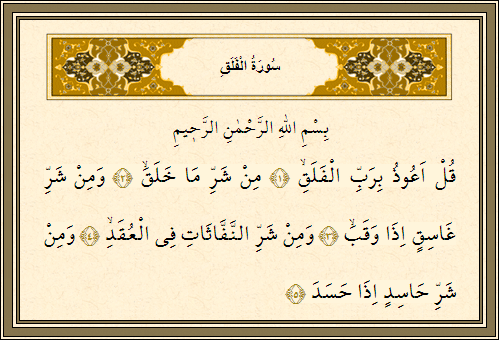 سُورَةُ الْفَلَقِ
بِسْمِ اللهِ الرَّحْمٰنِ الرَّحٖيمِ
قُلْ اَعُوذُ بِرَبِّ الْفَلَقِۙ ﴿١﴾ مِنْ شَرِّ مَا خَلَقَۙ ﴿٢﴾ وَمِنْ شَرِّ
غَاسِقٍ اِذَا وَقَبَۙ ﴿٣﴾ وَمِنْ شَرِّ النَّفَّاثَاتِ فِى الْعُقَدِۙ ﴿٤﴾ وَمِنْ
شَرِّ حَاسِدٍ اِذَا حَسَدَ ﴿٥﴾